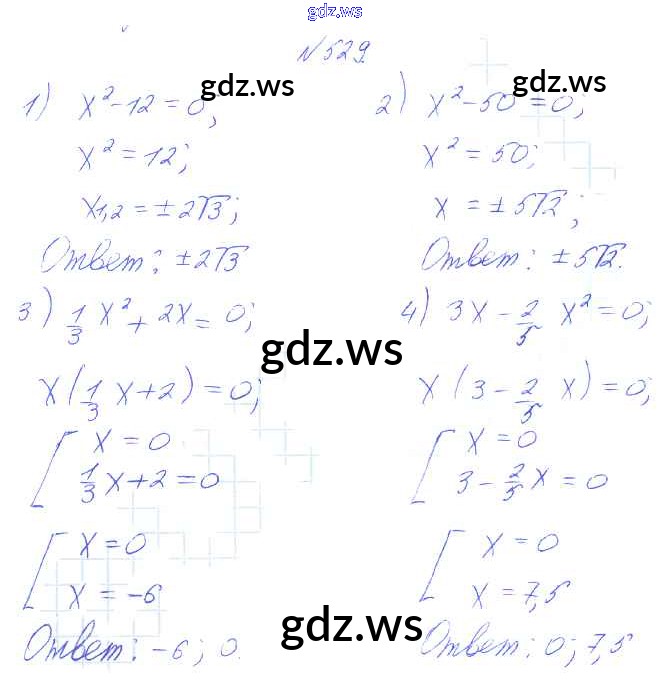 gdz.ws
№529.
gdz.ws
gdz.ws
1) x²-12=0;
x²=12;
x1,2=±2√3;
Ответ: ±2√3
2) x²-50=0;
x²=50;
x=±5√2;
Ответ: ±5√2.
3) 1/3 x²+2x=0;
x(1/3 x+2)=0;
[ x=0
1/3 x+2=0
[ x=0
x=-6
Ответ: -6; 0.
4) 3x-2/5 x²=0;
x(3-2/5 x)=0;
[ x=0
3-2/5 x=0
[ x=0
x=7,5
Ответ: 0; 7,5
gdz.ws
gdz.ws